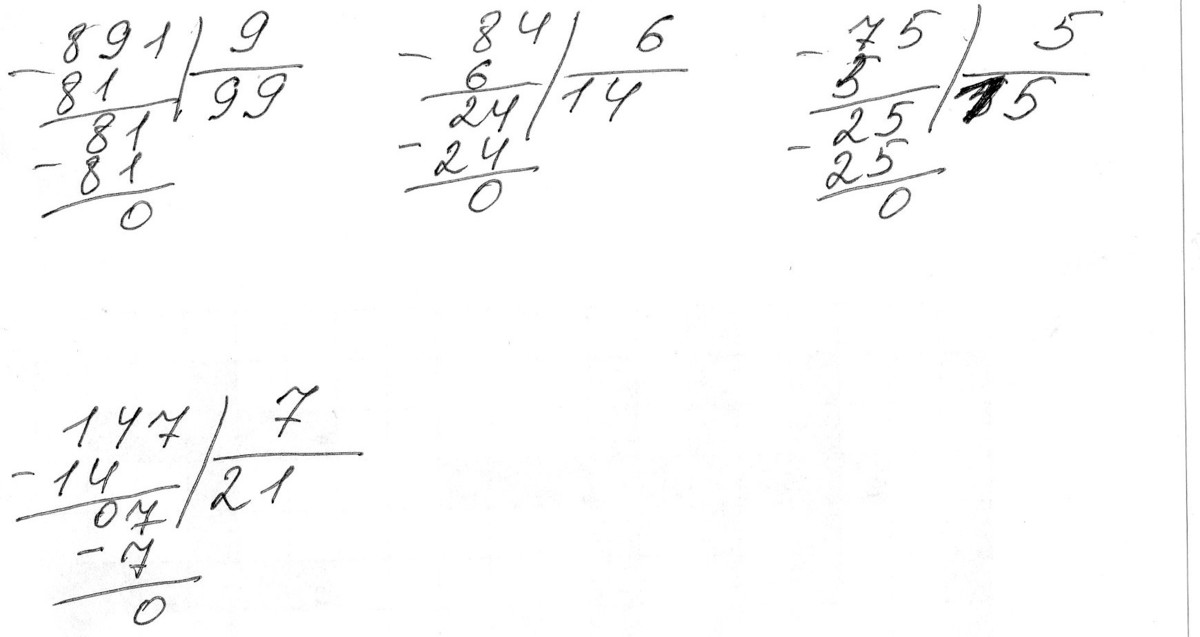 891 | 9
- 81 | 99
81
- 81
0
84 | 6
- 6 | 14
24
- 24
0
75 | 5
- 5 | 15
25
- 25
0
147 | 7
- 14 | 21
07
- 7
0